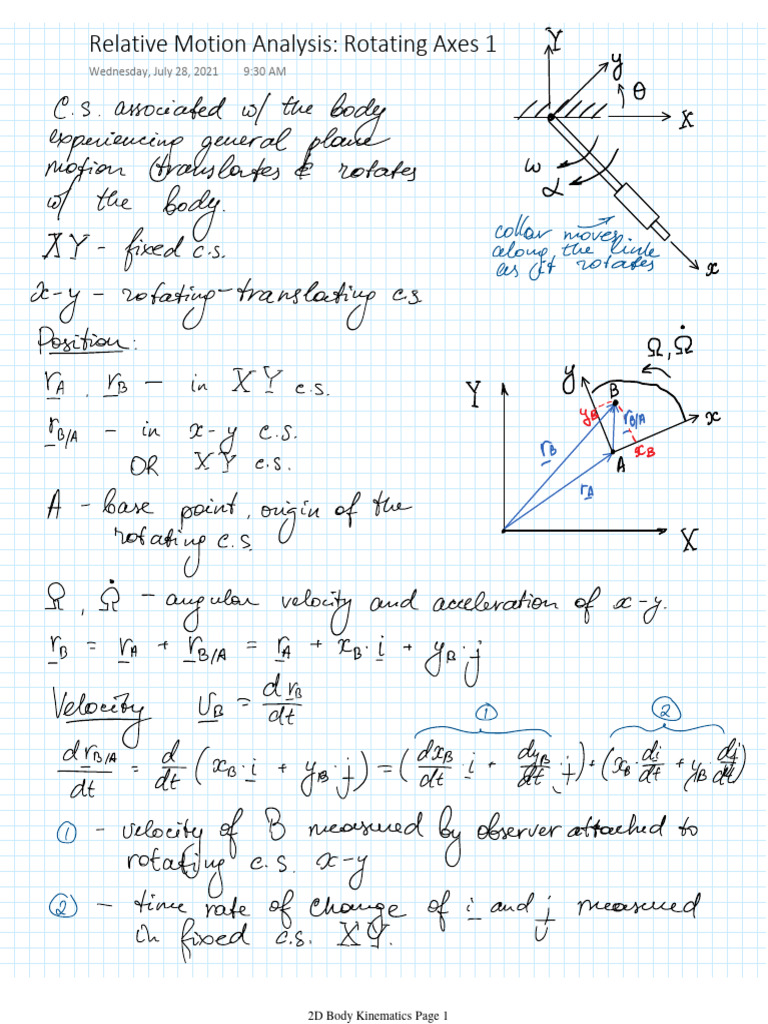 Relative Motion Analysis: Rotating Axes 1
Wednesday, July 28, 2021 9:30 AM
C.S. associated w/ the body
experiencing general plane
motion (translates & rotates
w/ the body.
XY - fixed c.s.
x-y - rotating-translating c.s
Y
y
θ
X
ω
α
collar moves
along the link
as it rotates
x
Position:
r_A, r_B - in XY c.s.
r_B/A - in x-y c.s.
OR XY c.s.
A - base point, origin of the
rotating c.s.
Ω, Ω̇
Y
y
B
x
y_B
r_B/A
r_B
x_B
A
r_A
X
Ω, Ω̇ - angular velocity and acceleration of x-y.
r_B = r_A + r_B/A = r_A + x_B · i + y_B · j
Velocity υ_B = dr_B/dt
① ②
dr_B/A/dt = d/dt (x_B · i + y_B · j) = (dx_B/dt · i + dy_B/dt · j) + (x_B · di/dt + y_B · dj/dt)
① - velocity of B measured by observer attached to
rotating c.s. x-y
② - time rate of change of i and j measured
in fixed c.s. XY.
2D Body Kinematics Page 1